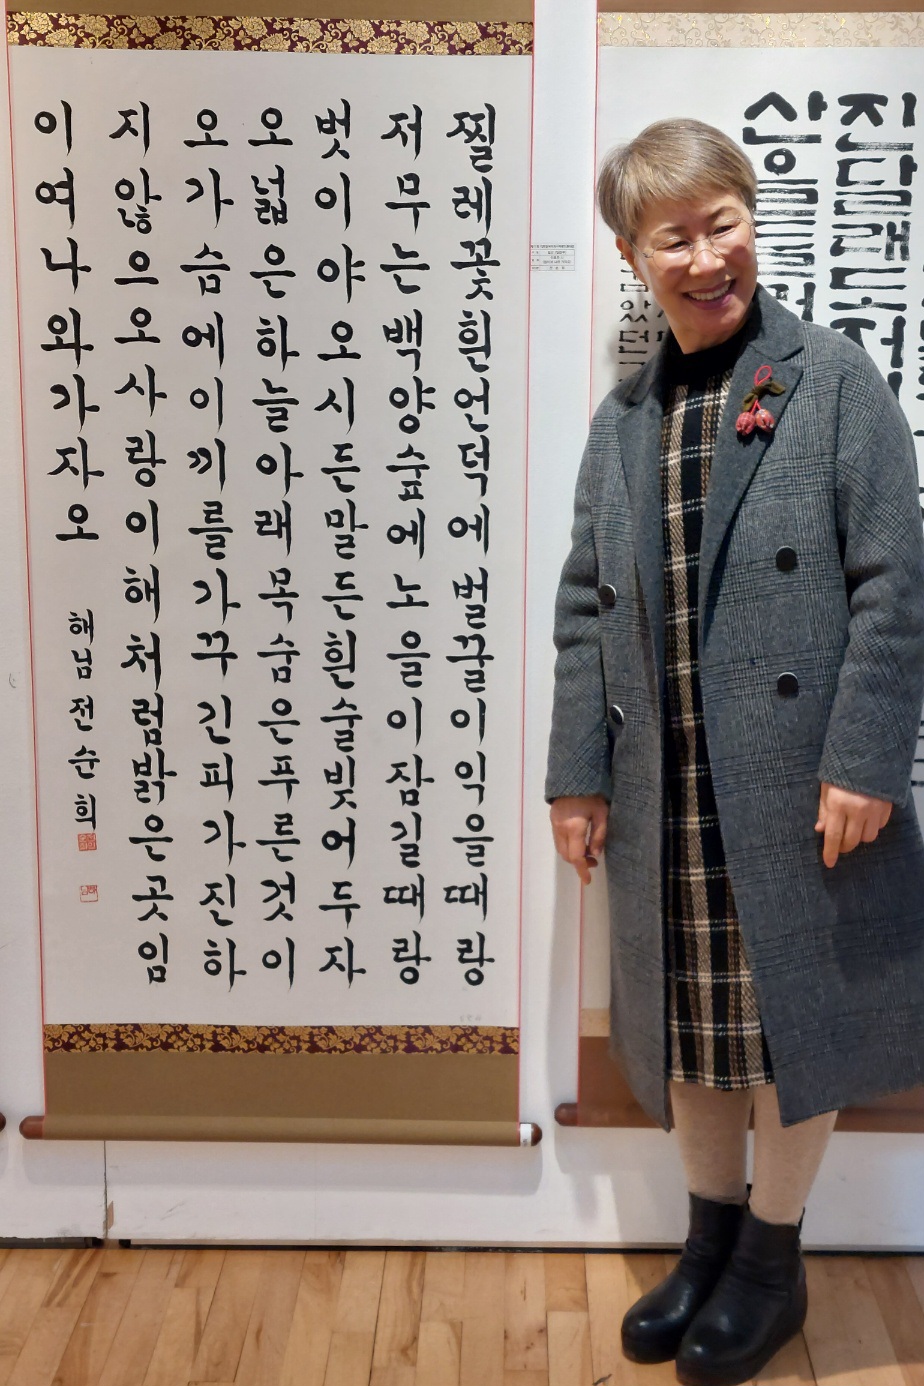 찔레꽃흰언덕에벌꿀이익을때랑
저무는백양숲에노을이잠길때랑
벗이야오시든말든흰술빚어두자
오넓은하늘아래목숨은푸른것이
오가슴에이끼를가꾸긴피가진하
지않으오사랑이해처럼밝은곳임
이여나와가자오
전순희
진달래도저